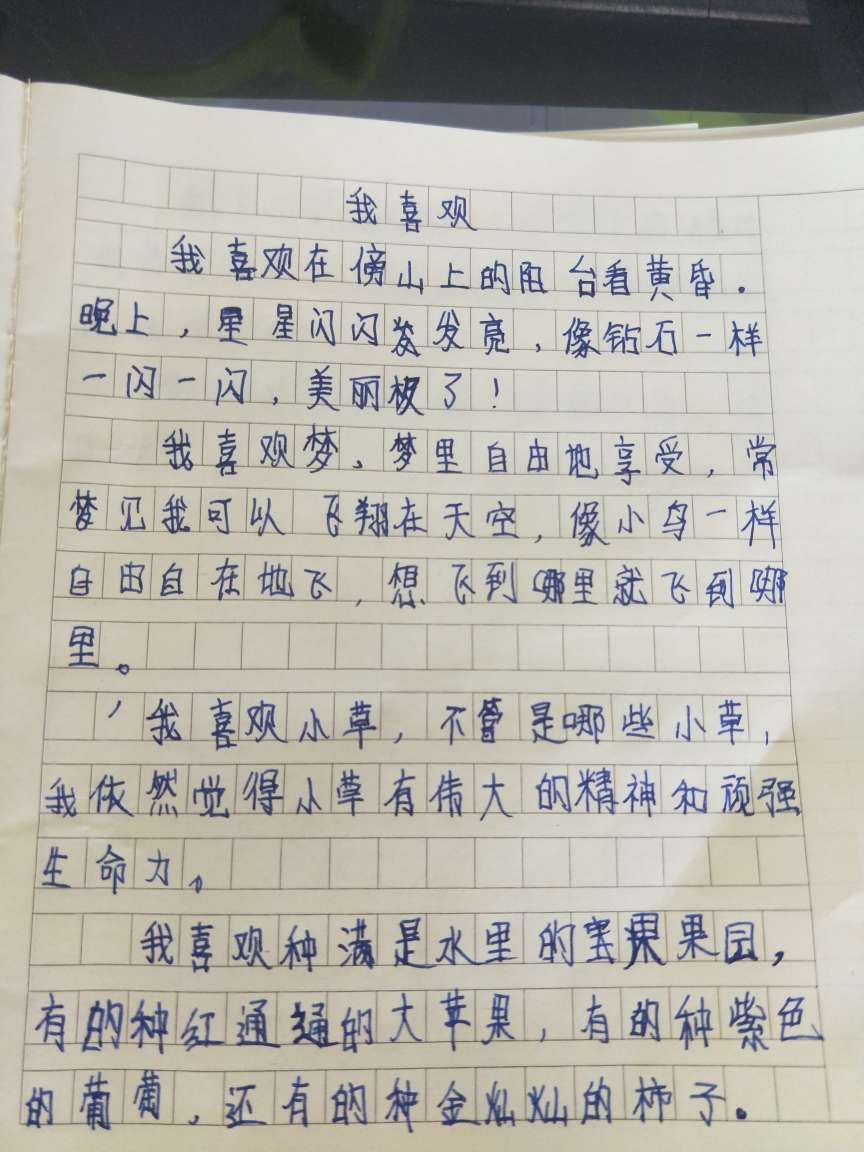 我喜欢
我喜欢在傍山上的阳台看黄昏．
晚上，星星闪闪发发亮，像钻石一样
一闪一闪，美丽极了！
我喜欢梦、梦里自由地享受，常
梦见我可以飞翔在天空，像小鸟一样
自由自在地飞，想飞到哪里就飞到哪
里。
我喜欢小草，不管是哪些小草，
我依然觉得小草有伟大的精神和顽强
生命力。
我喜欢种满是水里的宝果果园，
有的种红通通的大苹果，有的种紫色
的葡萄，还有的种金灿灿的柿子。